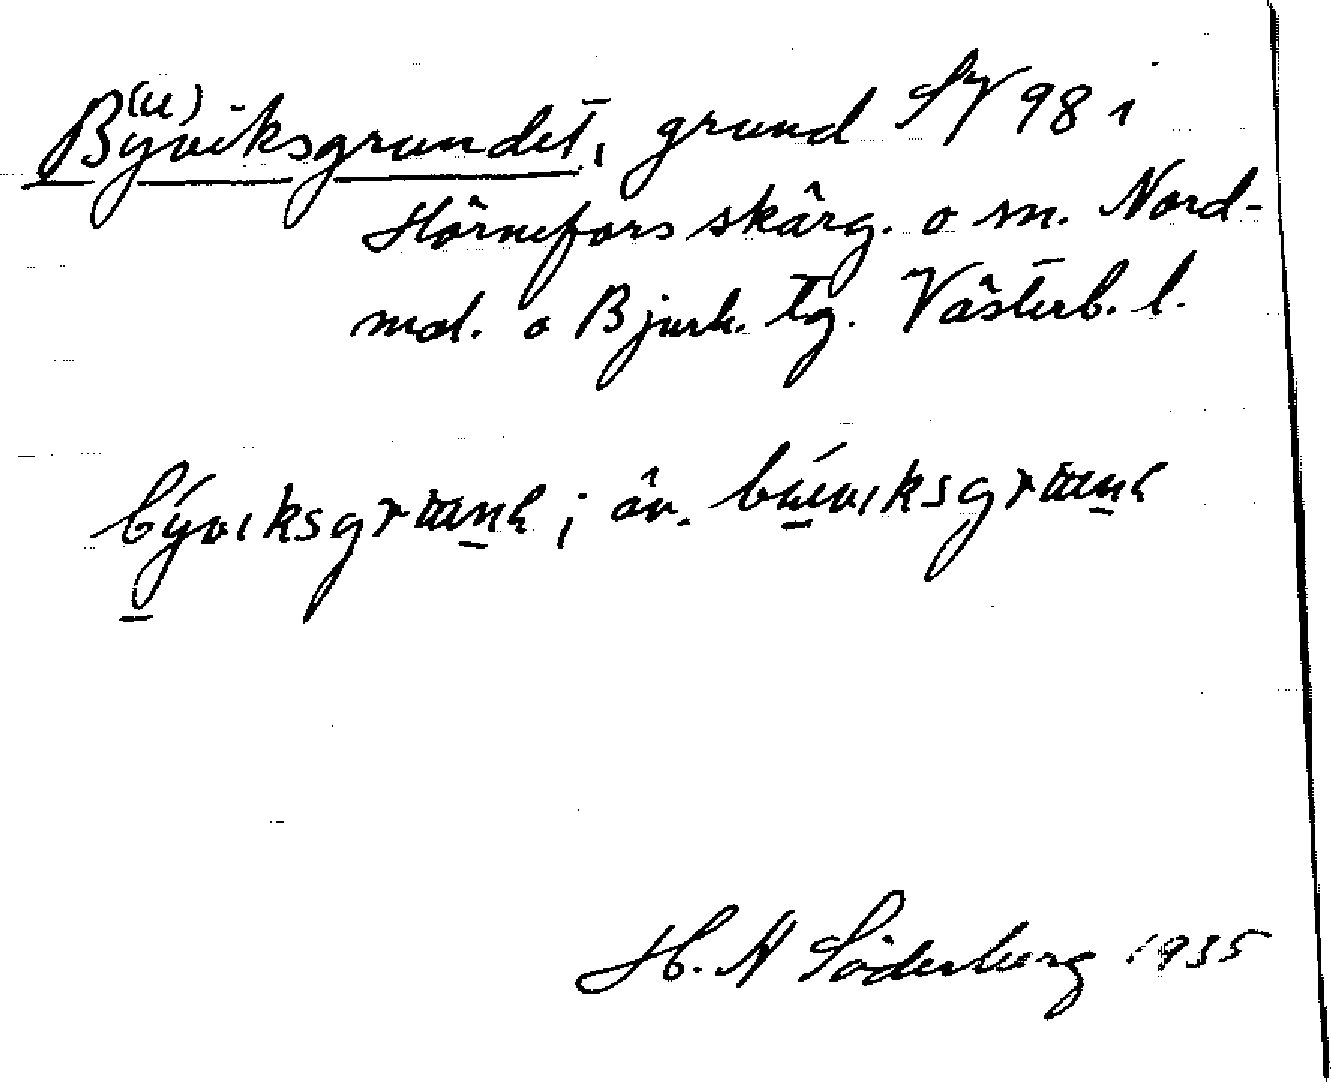 By(u)viksgrundet, grund SV 98 i
Hörnefors skärg. o sn. Nord-
mal. o Bjurh. tg. Västerb. l.
býviksgrunn; äv. búviksgrunn
H. A Söderberg 1935